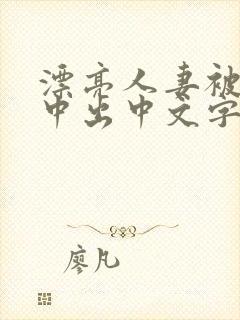 漂亮人妻被
中出中文字
廖凡